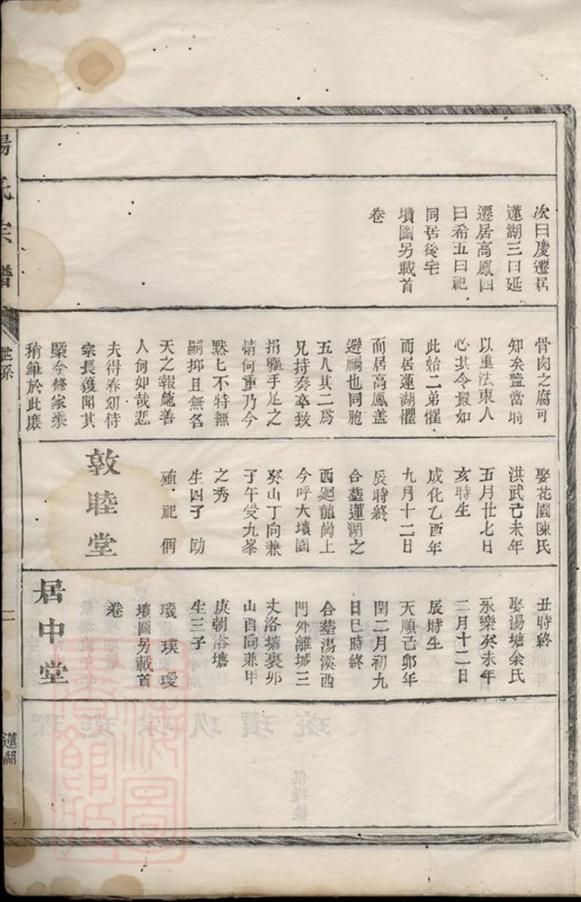 次曰慶遷居
蓮湖三曰延
遷居高鳳四
曰希五曰祀
同居後宅
墳圖另載首
卷
骨肉之腐可
知矣監當時
以重法東人
心其令嚴如
此始二弟懼
而居蓮湖懼
而居高鳳蓋
避禍也同胞
五人其二為
兄持奏卒致
捐軀手足之
情何重乃今
黙匕不特無
嗣抑且無名
天之報施善
人何如哉悲
夫得春幼侍
宗長獲聞其
槩今修家乘
稍維於此廉
娶花園陳氏
洪武己未年
五月廿七日
亥時生
成化乙酉年
九月十二日
辰時終
合塟蓮湖之
西廻龍崗上
今呼大墳園
癸山丁向兼
子午受九峯
之秀
生四子 勛
祀 侢
敦睦堂
丑時終
娶湯塘余氏
永樂癸未年
二月十二日
辰時生
天順己卯年
閏二月初九
日巳時終
合塟湯溪西
門外離城三
丈洛塘裏卯
山酉向兼甲
庚朝洛塘
生三子
璣 璞 璦
墳圖另載首
卷
居中堂
湯氏宗譜
世系
二
蓮湖